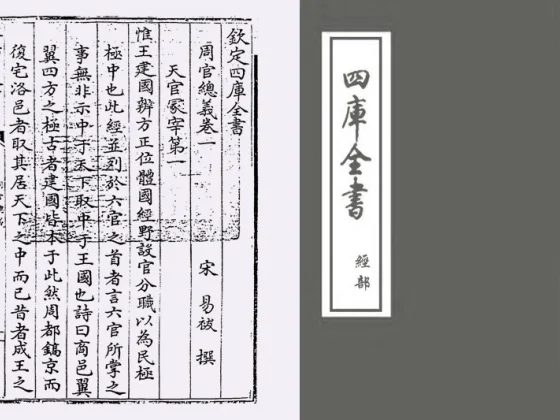 四庫全書
經部
欽定四庫全書
周官總義卷一 宋 易祓 撰
天官冢宰第一
惟王建國辨方正位體國經野設官分職以為民極
極中也此經並列於六官之首者言六官所掌之
事無非示中于天下取中于王國也詩曰商邑翼
翼四方之極古者建國皆本于此然周都鎬京而
復宅洛邑者取其居天下之中而已昔者成王之